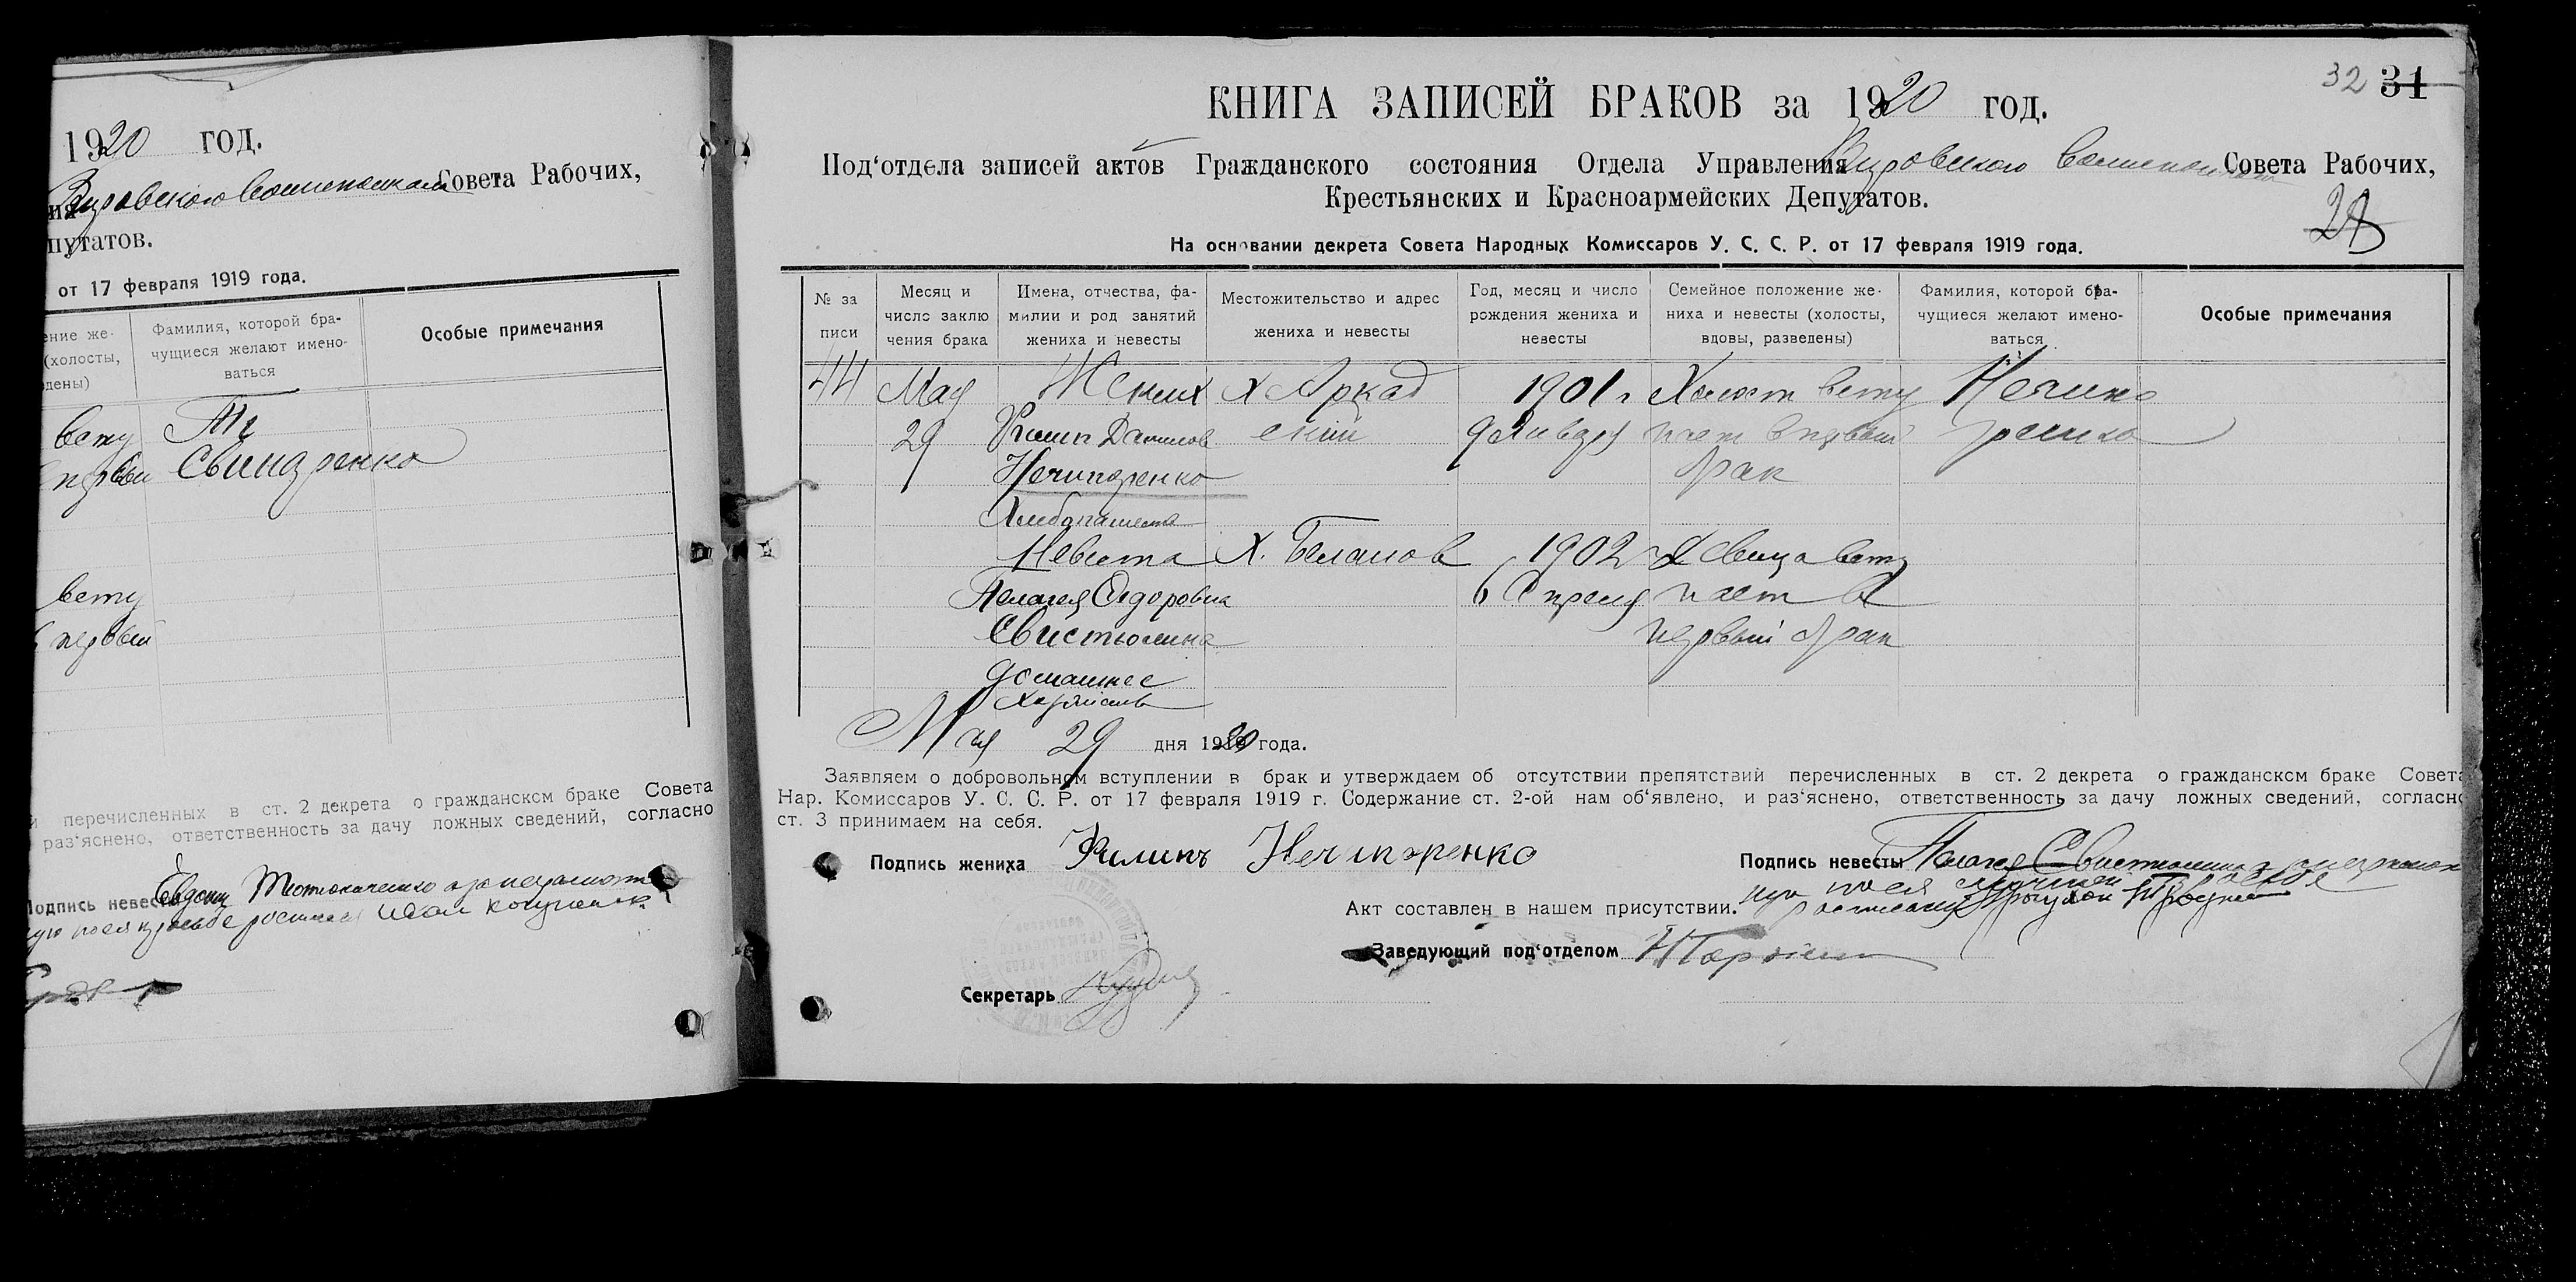 1920 год.
Совета Рабочих,
путатов.
от 17 февраля 1919 года.
ение же-
(холосты,
дены)
Фамилия, которой бра-
чущиеся желают имено-
ваться
Особые примечания
вету
первый Свинаренко
вету
первый
перечисленных в ст. 2 декрета о гражданском браке Совета
раз'яснено, ответственность за дачу ложных сведений, согласно
Подпись невесты
32 31
КНИГА ЗАПИСЕЙ БРАКОВ за 1920 год.
Под'отдела записей актов Гражданского состояния Отдела Управления Совета Рабочих,
Крестьянских и Красноармейских Депутатов.
На основании декрета Совета Народных Комиссаров У. С. С. Р. от 17 февраля 1919 года.
№ за
писи
Месяц и
число заклю
чения брака
Имена, отчества, фа-
милии и род занятий
жениха и невесты
Местожительство и адрес
жениха и невесты
Год, месяц и число
рождения жениха и
невесты
Семейное положение же-
ниха и невесты (холосты,
вдовы, разведены)
Фамилия, которой бра-
чущиеся желают имено-
ваться
Особые примечания
44 Мая Жених х Аркад 1901 г Холост вету Нечипо
29 Филип Данилов ский 9 Января пает в первый ренко
Нечипоренко брак
Хлебопашество
Невеста Х. Беланов 1902 г Девица вету
Пелагея Федоровна 6 Апреля пает в
Свистюлина первый брак
домашнее
Мая 29 дня 1920 года.
Заявляем о добровольном вступлении в брак и утверждаем об отсутствии препятствий перечисленных в ст. 2 декрета о гражданском браке Совета
Нар. Комиссаров У. С. С. Р. от 17 февраля 1919 г. Содержание ст. 2-ой нам об'явлено, и раз'яснено, ответственность за дачу ложных сведений, согласно
ст. 3 принимаем на себя.
Подпись жениха Филипъ Нечипоренко
Подпись невесты Пелагея Свистюлина
Акт составлен в нашем присутствии.
Заведующий под'отделом
Секретарь